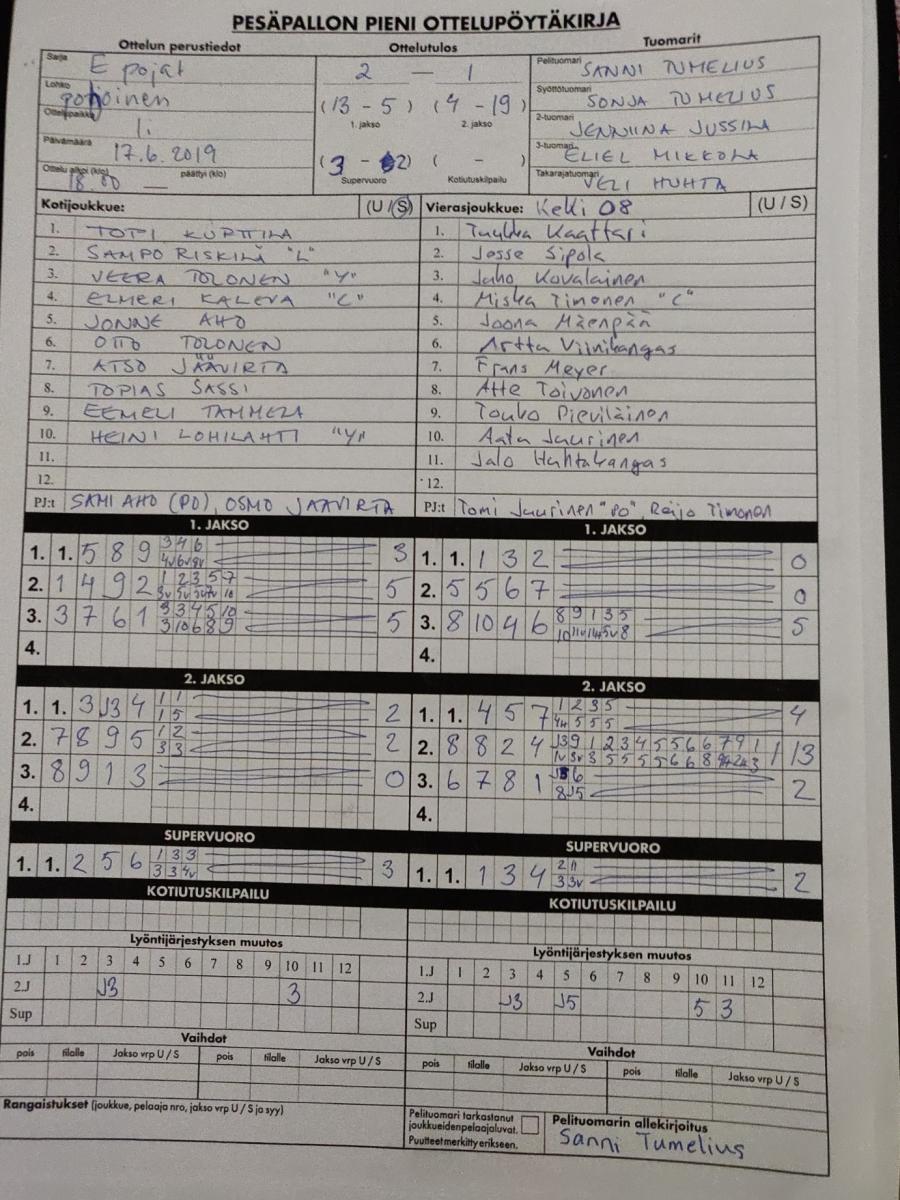 PESÄPALLON PIENI OTTELUPÖYTÄKIRJA
Ottelun perustiedot Ottelutulos Tuomarit
Sarja E pojat
Lohko pohjoinen
Ottelupaikka Ii
Päivämäärä 17.6.2019
Ottelu alkoi (klo) 18.00 — päättyi (klo)
2 — 1
(13 - 5) (4 - 19)
1. jakso 2. jakso
(3 - 2) ( - )
Supervuoro Kotiutuskilpailu
Pelituomari SANNI TUMELIUS
Syöttötuomari SONJA TUMELIUS
2-tuomari JENNIINA JUSSILA
3-tuomari ELIEL MIKKOLA
Takarajatuomari VELI HUHTA
Kotijoukkue: (U / S)
1. TOPI KURTTILA
2. SAMPO RISKILÄ "L"
3. VEERA TOLONEN "Y"
4. ELMERI KALEVA "C"
5. JONNE AHO
6. OTTO TOLONEN
7. ATSO JÄÄVIRTA
8. TOPIAS SASSI
9. EEMELI TAMMELA
10. HEINI LOHILAHTI "Y"
11.
12.
PJ:t SAMI AHO (PO), OSMO JAAVIRTA
Vierasjoukkue: KeKi 08 (U / S)
1. Tuukka Kaattari
2. Jesse Sipola
3. Juho Kovalainen
4. Miska Timonen "C"
5. Joona Mäenpää
6. Arttu Viinikangas
7. Frans Meyer
8. Atte Toivonen
9. Touko Pieviläinen
10. Aatu Juurinen
11. Jalo Huhtakangas
12.
PJ:t Tomi Juurinen "PO", Reijo Timonen
1. JAKSO
1. 1. 5 8 9 3 4 6 3
4v 6v 8v
2. 1 4 9 2 1 2 3 5 7 5
3. 3 7 6 1 3 3 4 5 10 5
3 10 6 8 9
4.
1. JAKSO
1. 1. 1 3 2 0
2. 5 5 6 7 0
3. 8 10 4 6 8 9 1 3 5 5
4.
2. JAKSO
1. 1. 3 J3 4 1 1 2
1 5
2. 7 8 9 5 1 2 2
3 3
3. 8 9 1 3 0
4.
2. JAKSO
1. 1. 4 5 7 1 2 3 5 4
4v 5 5 5
2. 8 8 2 4 J3 9 1 2 3 4 5 5 6 6 7 9 1 13
3. 6 7 8 1 J3 6 2
8 J5
4.
SUPERVUORO
1. 1. 2 5 6 1 3 3 3
3 3 4v
SUPERVUORO
1. 1. 1 3 4 2 11 2
3 3v
KOTIUTUSKILPAILU
Lyöntijärjestyksen muutos
1.J 1 2 3 4 5 6 7 8 9 10 11 12
2.J J3 3
Sup
KOTIUTUSKILPAILU
Lyöntijärjestyksen muutos
1.J 1 2 3 4 5 6 7 8 9 10 11 12
2.J J3 J5 5 3
Sup
Vaihdot
pois tilalle Jakso vrp U / S pois tilalle Jakso vrp U / S
Vaihdot
pois tilalle Jakso vrp U / S pois tilalle Jakso vrp U / S
Rangaistukset (joukkue, pelaaja nro, jakso vrp U / S ja syy)
Pelituomari tarkastanut
joukkueidenpelaajaluvat.
Puutteet merkitty erikseen.
Pelituomarin allekirjoitus
Sanni Tumelius